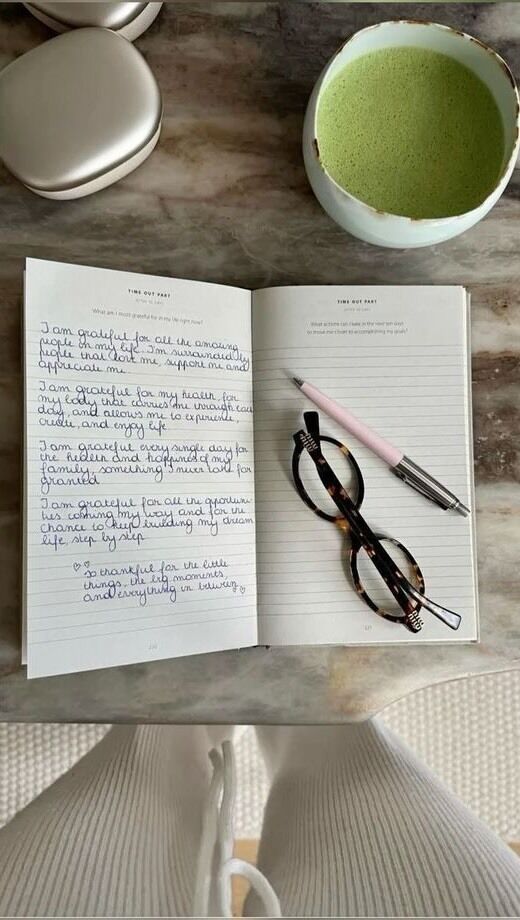 TIME OUT PART
AFTER 10 DAYS
What am I most grateful for in my life right now?
I am grateful for all the amazing
people in my life. I'm surrounded by
people that love me, support me and
appreciate me.
I am grateful for my health, for
my body that carries me through each
day, and allows me to experience,
create, and enjoy life.
I am grateful every single day for
the health and happiness of my
family, something I never take for
granted
I am grateful for all the opportuni-
ties coming my way and for the
chance to keep building my dream
life, step by step
So thankful for the little
things, the big moments,
and everything in between
TIME OUT PART
AFTER 10 DAYS
What actions can I take in the next ten days
to move me closer to accomplishing my goals?